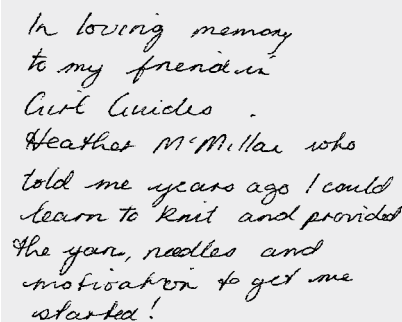 In loving memory
to my friend in
Girl Guides.
Heather McMillan who
told me years ago I could
learn to knit and provided
the yarn, needles and
motivation to get me
started!